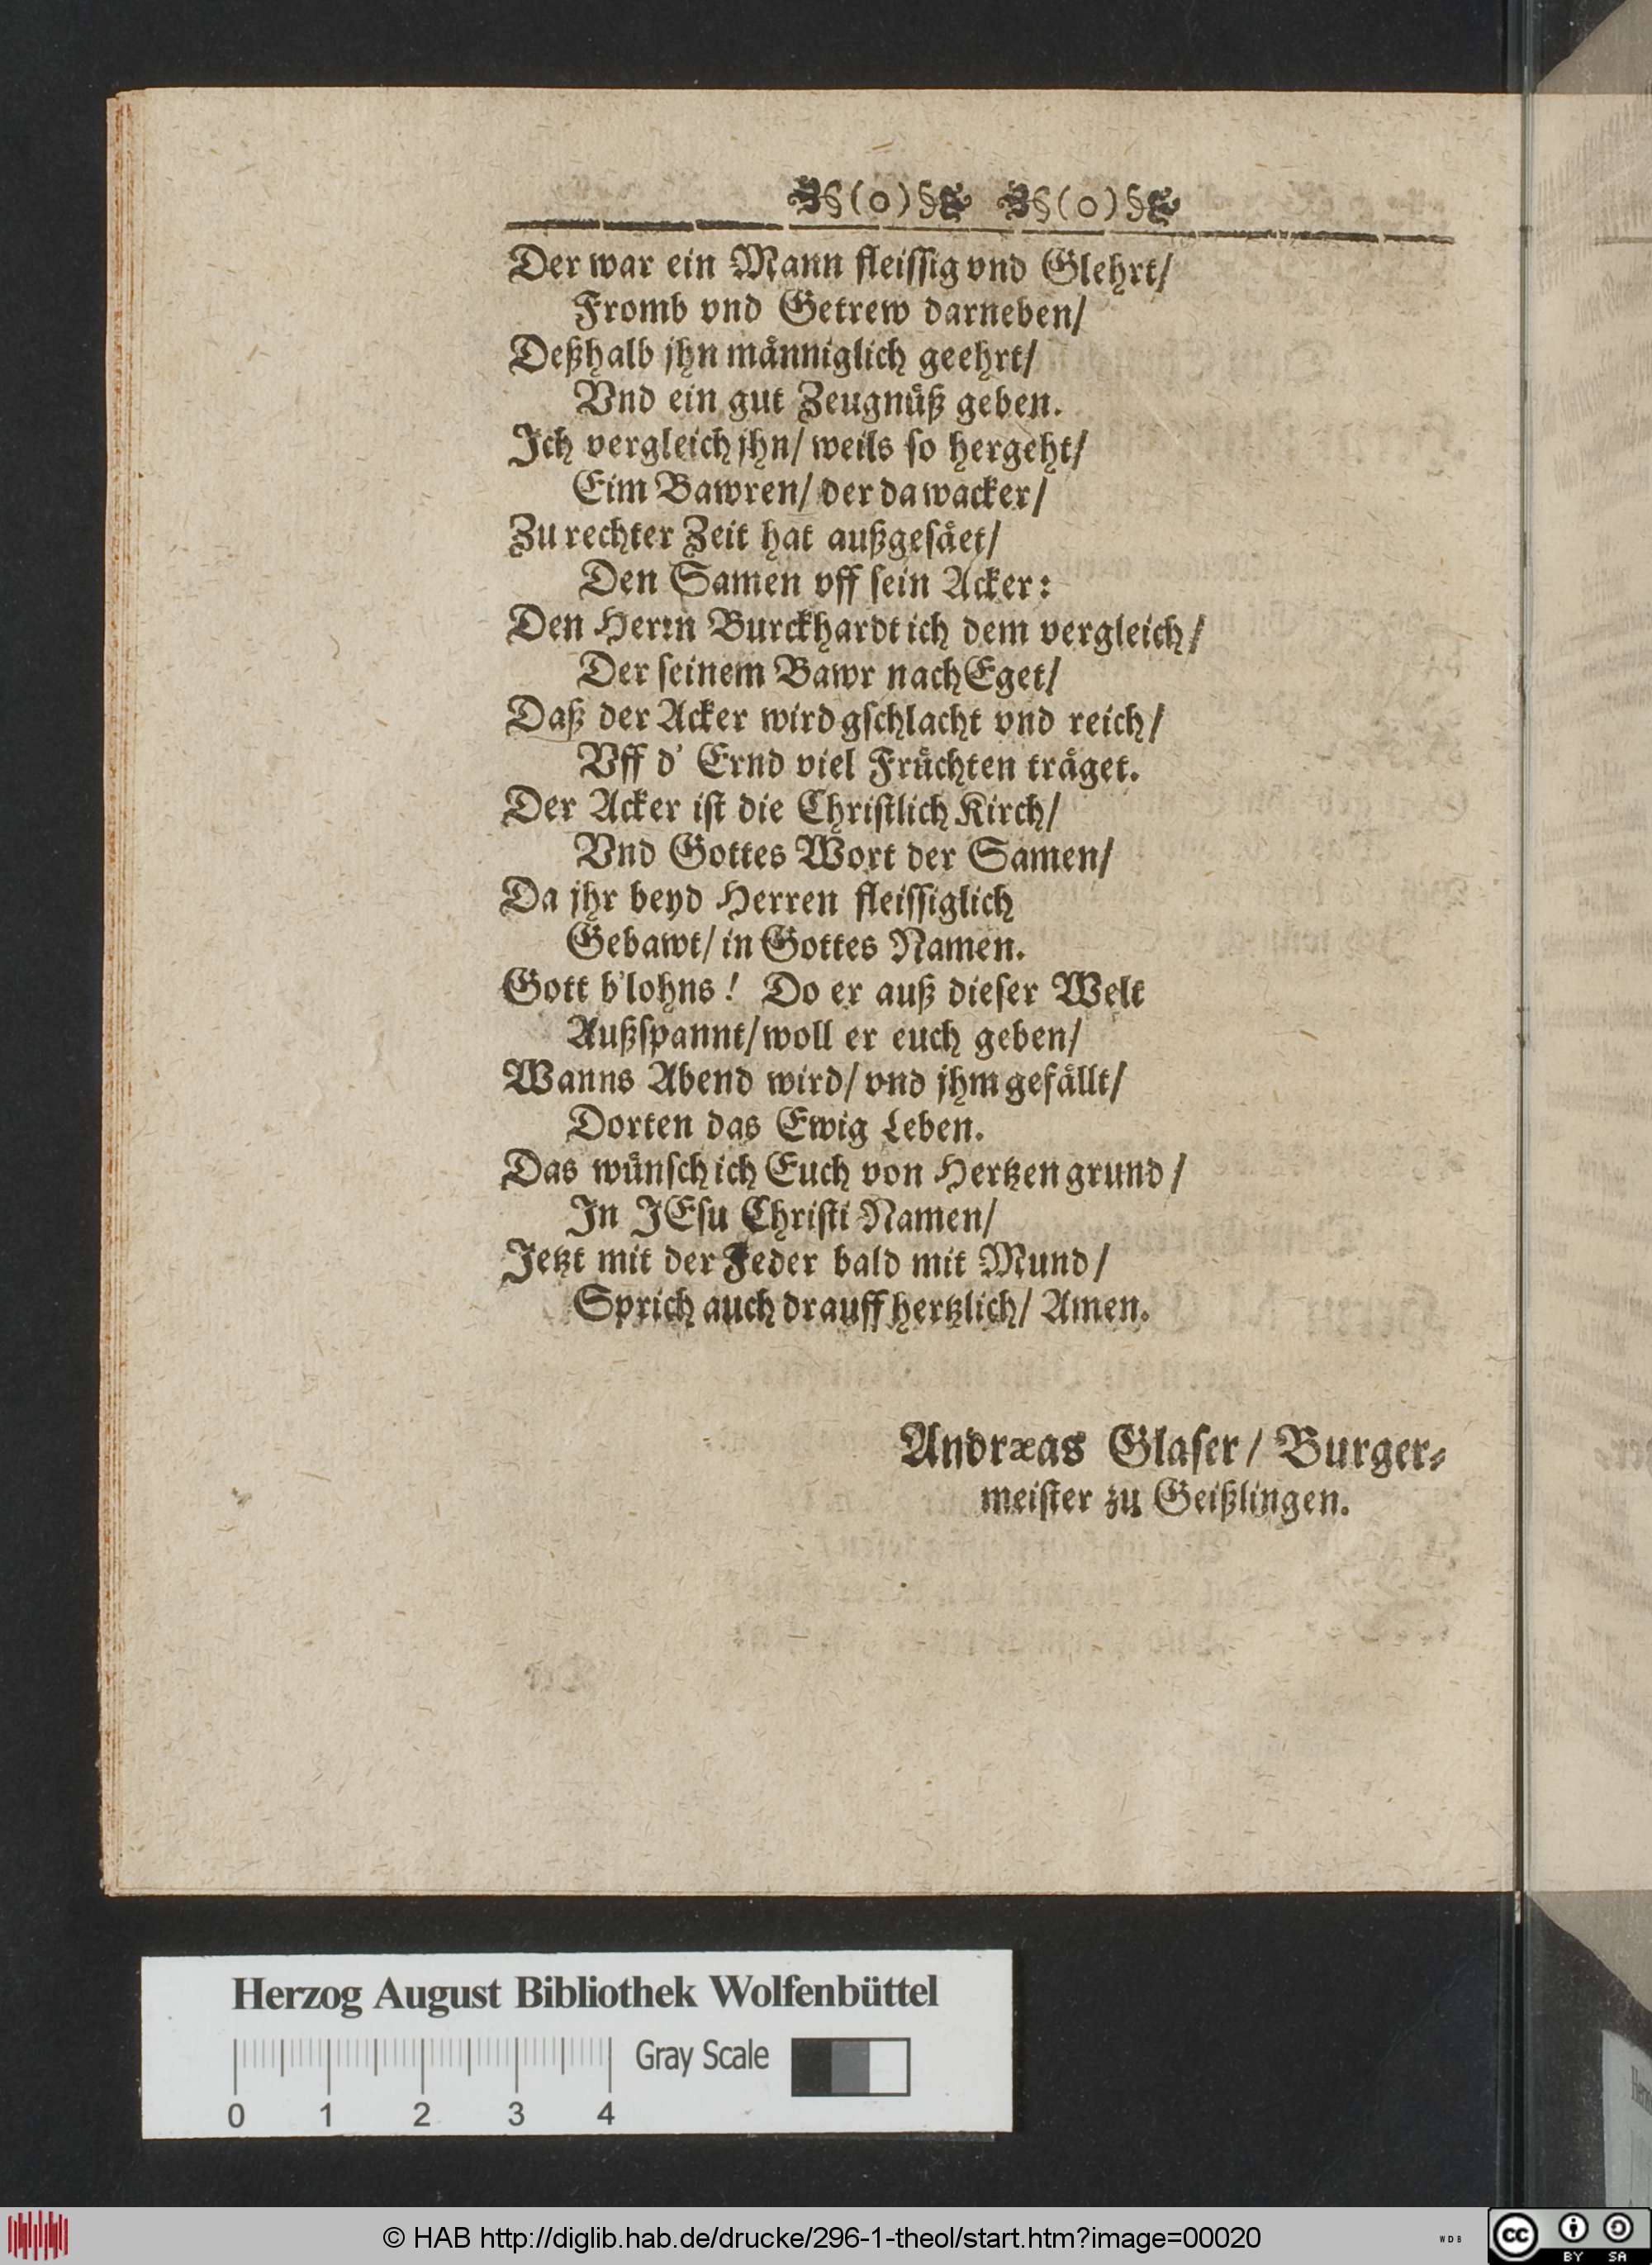 §(o)§ §(o)§
Der war ein Mann fleiſſig vnd Glehrt/
Fromb vnd Getrew darneben/
Deßhalb jhn maͤnniglich geehrt/
Vnd ein gut Zeugnuͤß geben.
Ich vergleich jhn/ weils ſo hergeht/
Eim Bawren/ der da wacker/
Zu rechter Zeit hat außgeſaͤet/
Den Samen vff ſein Acker:
Den Herꝛn Burckhardt ich dem vergleich/
Der ſeinem Bawr nach Eget/
Daß der Acker wird gſchlacht vnd reich/
Vff d' Ernd viel Fruͤchten traͤget.
Der Acker iſt die Chriſtlich Kirch/
Vnd Gottes Wort der Samen/
Da jhr beyd Herren fleiſſiglich
Gebawt/ in Gottes Namen.
Gott b'lohns! Do er auß dieſer Welt
Außſpannt/ woll er euch geben/
Wanns Abend wird/ vnd jhm gefaͤllt/
Dorten das Ewig Leben.
Das wuͤnſch ich Euch von Hertzen grund/
In JEſu Chriſti Namen/
Jetzt mit der Feder bald mit Mund/
Sprich auch drauff hertzlich/ Amen.
Andræas Glaſer/ Burger⸗
meiſter zu Geißlingen.
Herzog August Bibliothek Wolfenbüttel
Gray Scale
0 1 2 3 4
© HAB http://diglib.hab.de/drucke/296-1-theol/start.htm?image=00020
WDB
cc BY SA